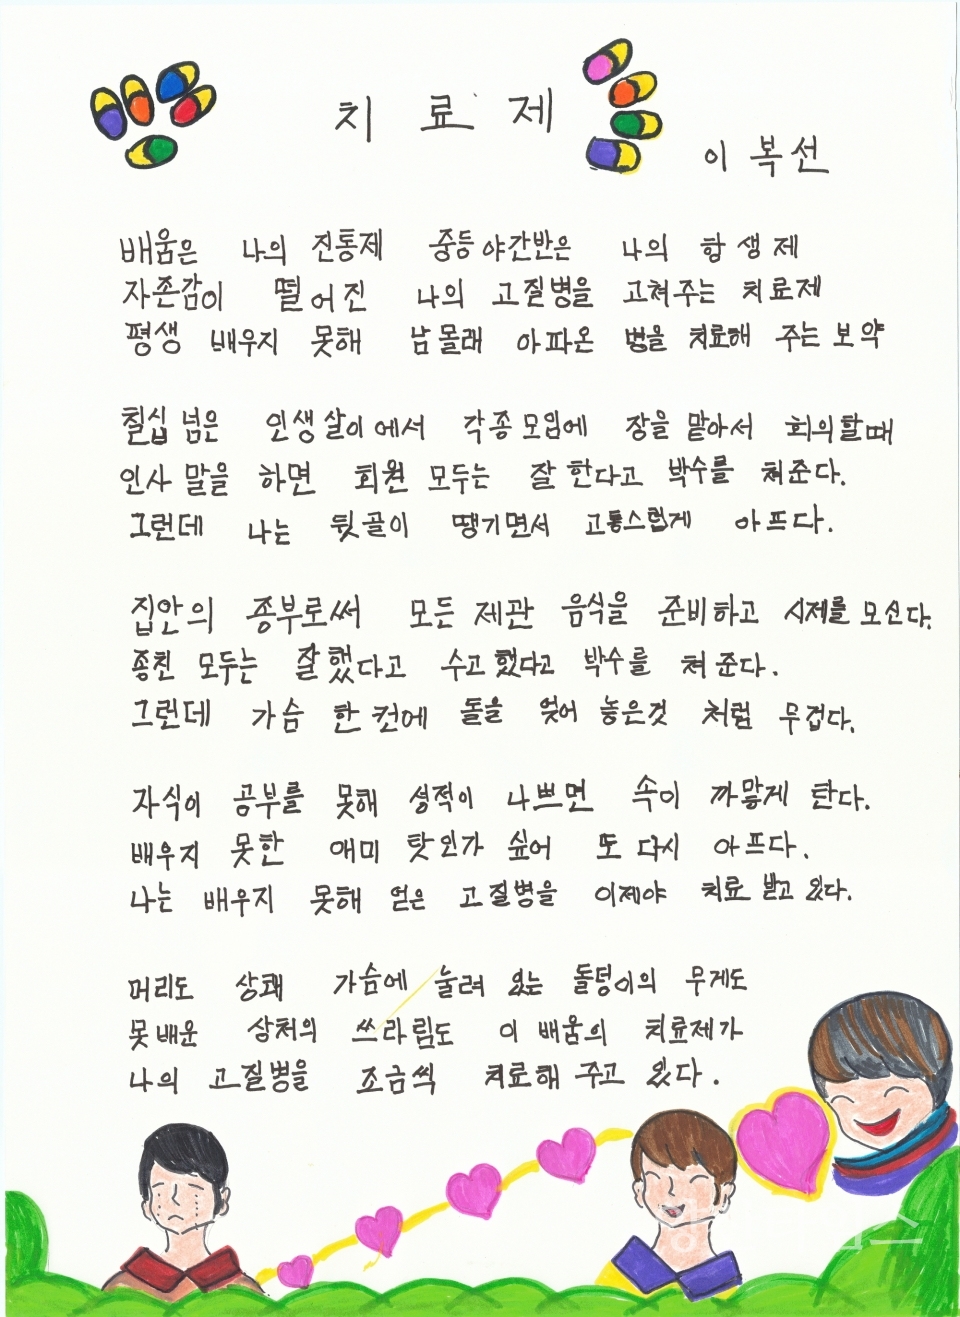 치료제
이복선
배움은 나의 진통제 중등야간반은 나의 항생제
자존감이 떨어진 나의 고질병을 고쳐주는 치료제
평생 배우지 못해 남몰래 아파온 병을 치료해 주는 보약
칠십 넘은 인생살이에서 각종모임에 장을 맡아서 회의할때
인사 말을 하면 회원 모두는 잘 한다고 박수를 쳐준다.
그런데 나는 뒷골이 땡기면서 고통스럽게 아프다.
집안의 종부로써 모든 제관 음식을 준비하고 시제를 모신다.
종친 모두는 잘했다고 수고했다고 박수를 쳐 준다.
그런데 가슴 한 컨에 돌을 얹어 놓은것 처럼 무겁다.
자식이 공부를 못해 성적이 나쁘면 속이 까맣게 탄다.
배우지 못한 애미 탓인가 싶어 또 다시 아프다.
나는 배우지 못해 얻은 고질병을 이제야 치료 받고 있다.
머리도 상쾌 가슴에 눌려 있는 돌덩이의 무게도
못배운 상처의 쓰라림도 이 배움의 치료제가
나의 고질병을 조금씩 치료해 주고 있다.